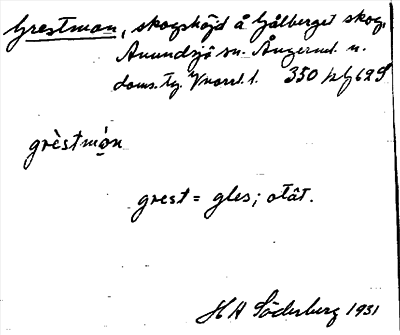 Grestman, skogshöjd å Gålberget skog,
Anundsjö sn. Ångerml. n.
doms. tg. Vnorrl. l. 350
grèstmòn
grest = gles; otät.
H A Söderberg 1931